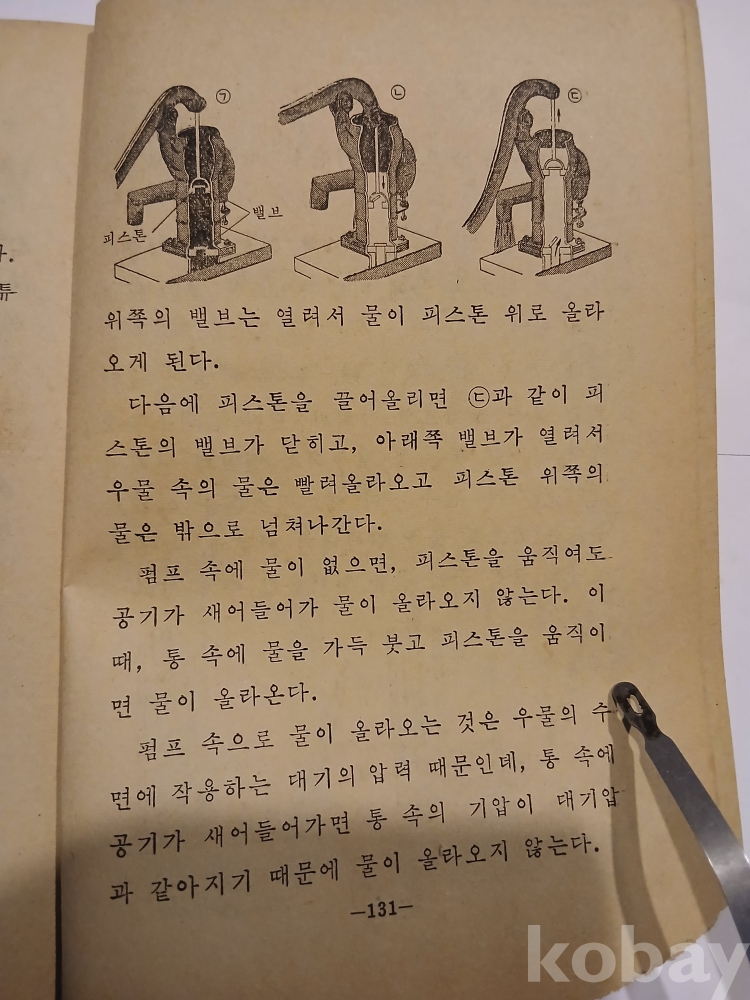 ㉠
㉡
㉢
밸브
피스톤
다.
튜
위쪽의 밸브는 열려서 물이 피스톤 위로 올라
오게 된다.
다음에 피스톤을 끌어올리면 ㉢과 같이 피
스톤의 밸브가 닫히고, 아래쪽 밸브가 열려서
우물 속의 물은 빨려올라오고 피스톤 위쪽의
물은 밖으로 넘쳐나간다.
펌프 속에 물이 없으면, 피스톤을 움직여도
공기가 새어들어가 물이 올라오지 않는다. 이
때, 통 속에 물을 가득 붓고 피스톤을 움직이
면 물이 올라온다.
펌프 속으로 물이 올라오는 것은 우물의 수
면에 작용하는 대기의 압력 때문인데, 통 속에
공기가 새어들어가면 통 속의 기압이 대기압
과 같아지기 때문에 물이 올라오지 않는다.
—131—
kobay